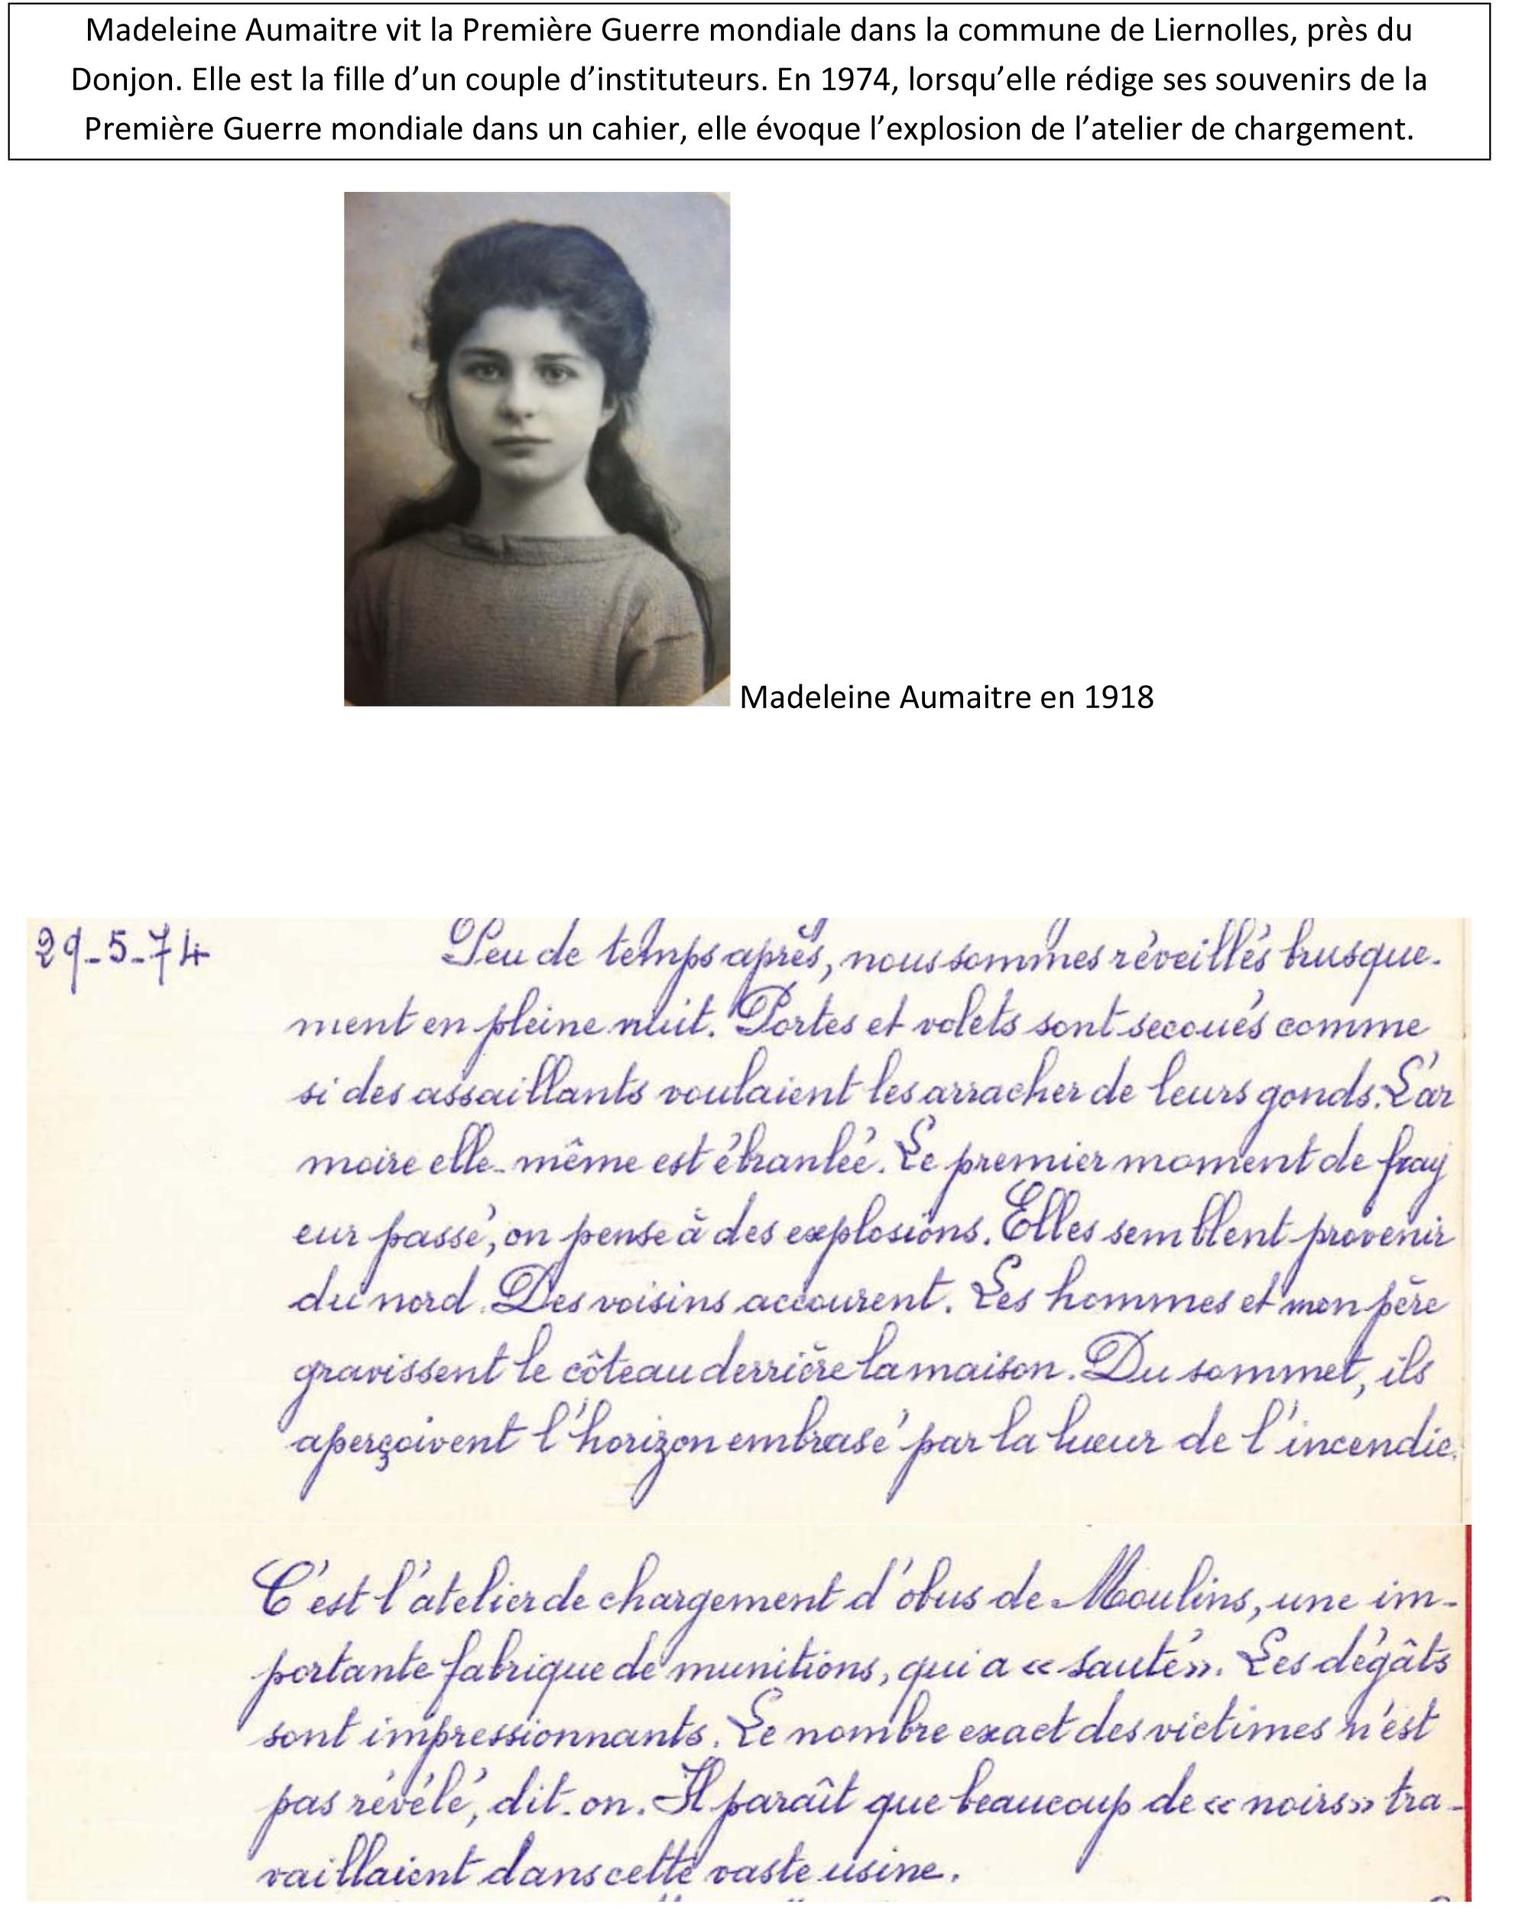 Madeleine Aumaitre vit la Première Guerre mondiale dans la commune de Liernolles, près du
Donjon. Elle est la fille d’un couple d’instituteurs. En 1974, lorsqu’elle rédige ses souvenirs de la
Première Guerre mondiale dans un cahier, elle évoque l’explosion de l’atelier de chargement.
Madeleine Aumaitre en 1918
29-5-74
Peu de temps après, nous sommes réveillés brusque-
ment en pleine nuit. Portes et volets sont secoués comme
si des assaillants voulaient les arracher de leurs gonds. L'ar
moire elle-même est ébranlée. Le premier moment de fray
eur passé, on pense à des explosions. Elles semblent provenir
du nord. Des voisins accourent. Les hommes et mon père
gravissent le côteau derrière la maison. Du sommet, ils
aperçoivent l'horizon embrasé par la lueur de l'incendie.
C'est l'atelier de chargement d'obus de Moulins, une im-
portante fabrique de munitions, qui a « sauté ». Les dégâts
sont impressionnants. Le nombre exact des victimes n'est
pas révélé, dit-on. Il paraît que beaucoup de « noirs » tra-
vaillaient dans cette vaste usine.